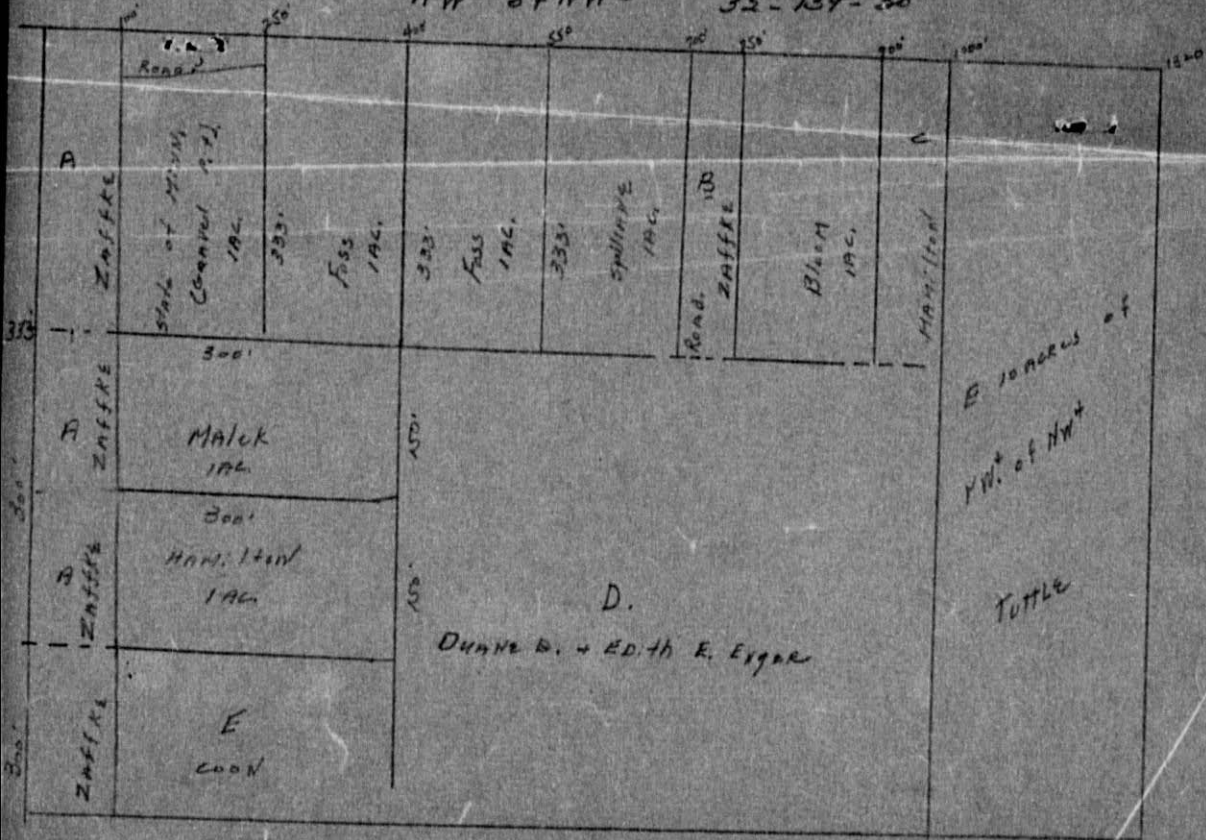 32-134-30
100' 250' 400' 550' 700' 750' 900' 1000' 1320
Road
A
ZAffKE
State of Minn,
(Gravel Pit)
1AC.
333'
Foss
1AC.
333'
Foss
1AC.
333'
Spillane
1AC.
Road.
B
ZAffKE
Blom
1AC.
C
HAmilton
333'
300'
A
ZAffKE
MAlek
1AC.
150'
300'
300'
A
ZAffKE
HAmilton
1AC.
150'
300'
ZAffKE
E
COON
D.
DuANE D. + EDith E.
E 10 ACRES of
NW⁴ of NW⁴
TuttLE